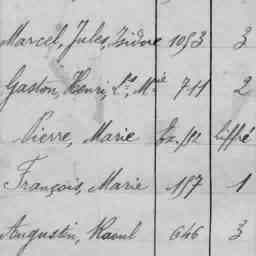 Marcel, Jules, Isidore 1053 3
Gaston, Henri, Ls, Mie 711 2
Pierre, Marie liffré
François, Marie 157 1
Augustin, Raoul 646 3